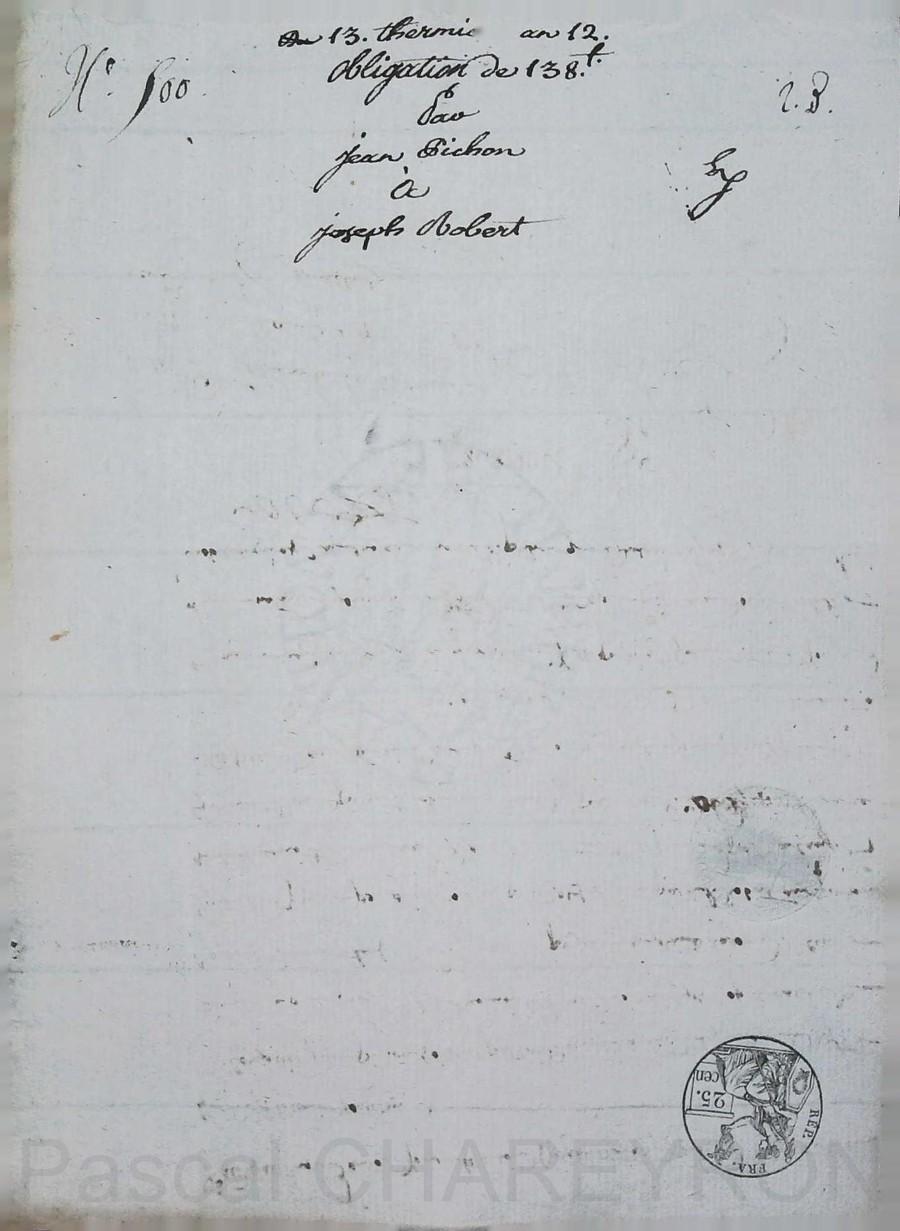 Du 13. thermi an 12.
obligation de 138.f.
Par
jean Pichon
à
joseph Robert
N.º 500.
2. B.
25.
cen
REP.
FRA.
Pascal CHAREYRON